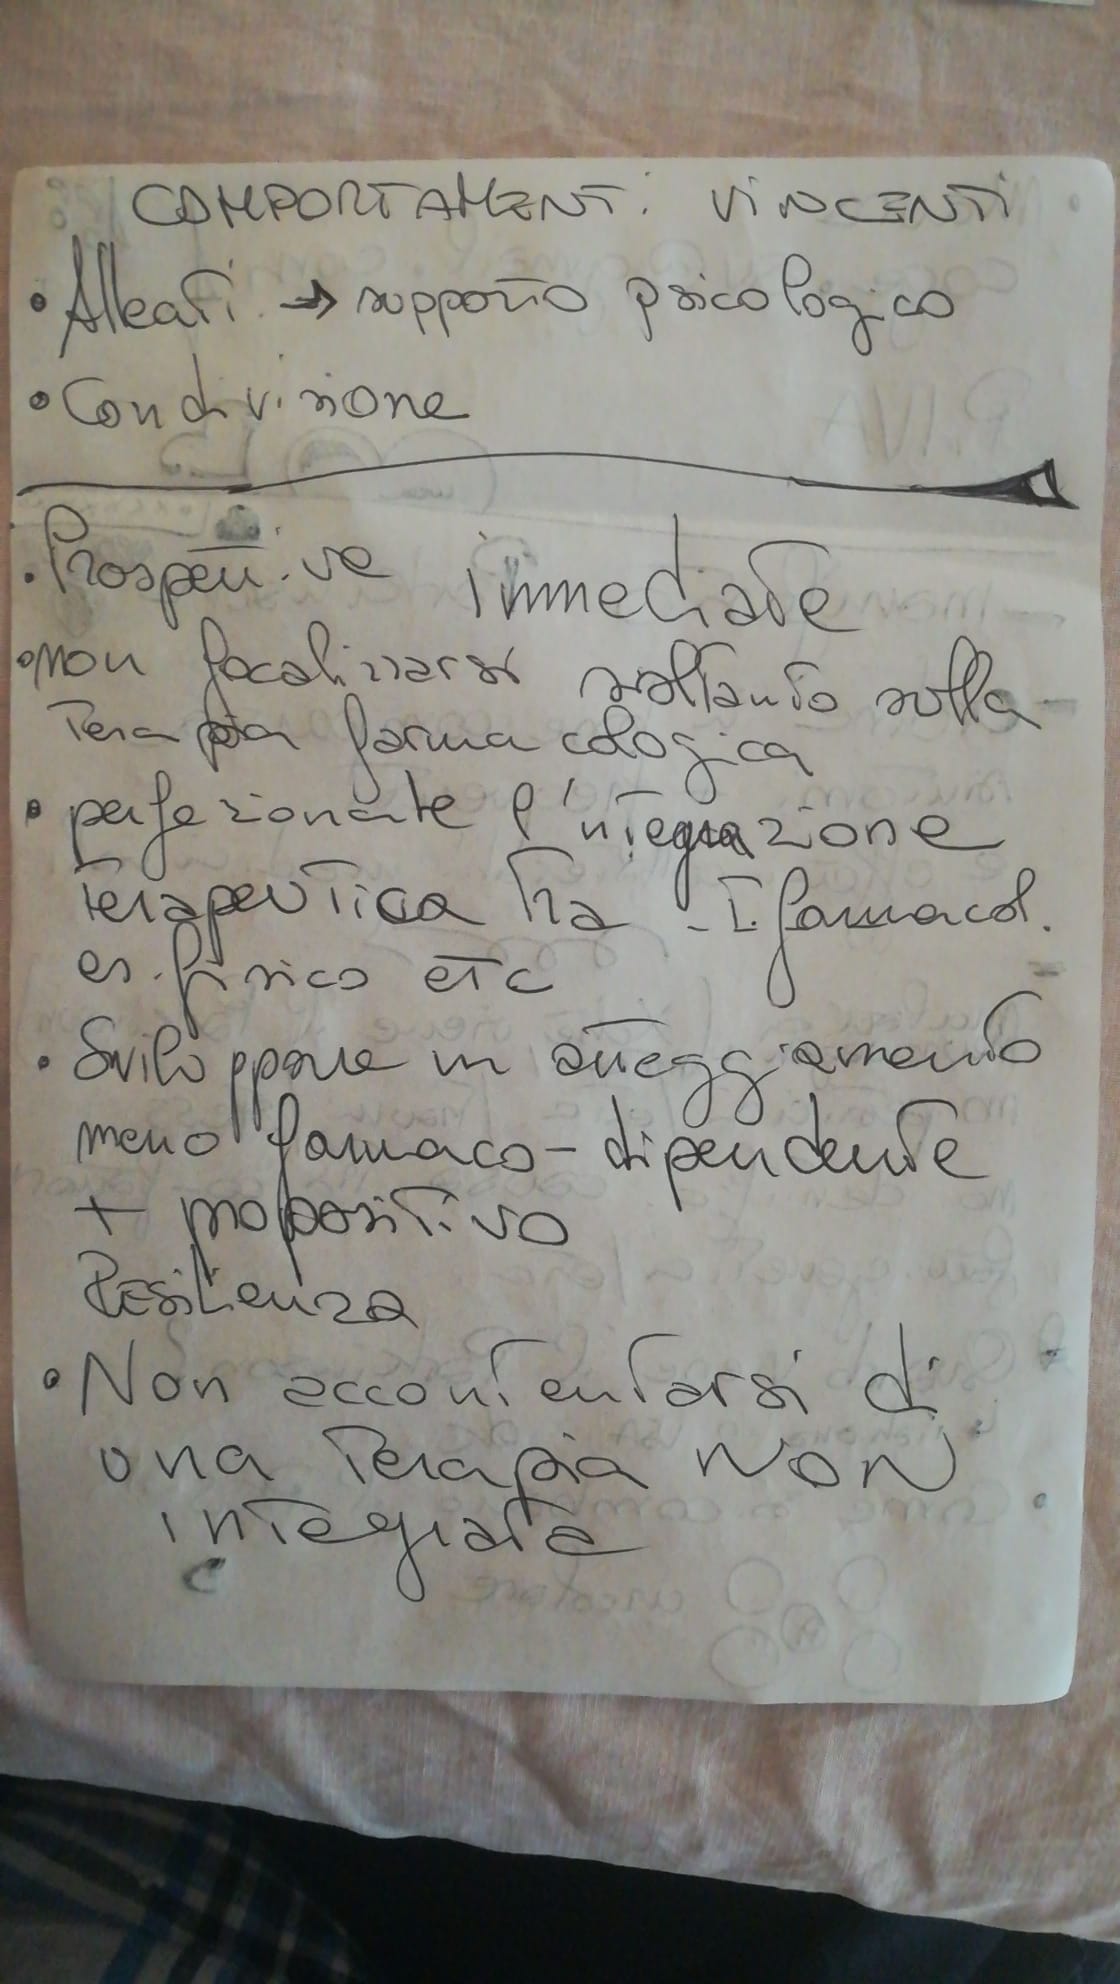 COMPORTAMENTI VINCENTI
• Alleati → supporto psicologico
• Condivisione
• Prospettive immediate
• non focalizzarsi soltanto sulla
terapia farmacologica
• perfezionare l'integrazione
terapeutica tra - T. farmacol.
es. fisico etc
• Sviluppare un atteggiamento
meno farmaco-dipendente
+ propositivo
Resilienza
• Non accontentarsi di
una terapia NON
integrata